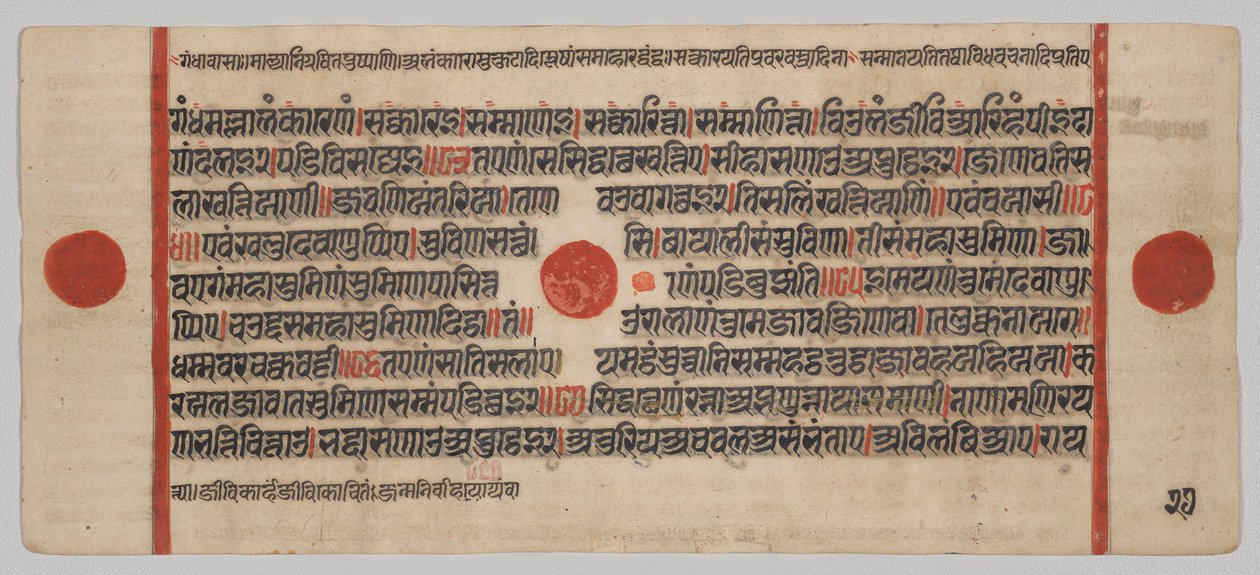 गंधावासा॥माल्यानिग्रथितपुष्पाणि।अलंकारामुकुटादिएषांसमाहारद्वंद्वः॥सत्कारयतिप्रवरवस्त्रादिना सन्मानयतितथाविधवचनादिप्रतिप
गंधमल्लालंकारेणं।सक्कारेइ।सम्माणेइ।सक्कारित्ता।सम्माणित्ता।विउलंजीविआरिहंपीइदा
णंदलइ२।पडिविसज्जेइ॥८३तएणंसेसिद्धत्थेखत्तिए।सीहासणाउअब्भुट्ठेइ२।जेणेवतिस
लाखत्तिआणी॥जवणिअंतरिआ।तेणेवउवागच्छइ२।तिसलिंखत्तिआणिं॥एवंवयासी॥८
४॥एवंखलुदेवाणुप्पिए।सुविणसत्थंसि।बायालीसंसुविणा।तीसंमहासुमिणा।जा
वएगंमहासुमिणंसुमिणेपासित्ताणंपडिबुज्झंति॥८५इमेयणंतुमेदेवाणु
प्पिए।चउद्दसमहासुमिणादिट्ठा॥तं॥उरालाणंतुमेजावजिणेवा।तेलुक्कनायगे॥
धम्मवरचक्कवट्टी॥८६तएणंसातिसलाएयमट्ठंसुच्चानिसम्महट्ठतुट्ठाजावहयहिअया।क
रयलजावतेसुमिणेसम्मंपडिच्छइ२॥८७सिद्धत्थेणंरन्नाअब्भणुन्नायासमाणी।नाणामणिरय
णभत्तिचित्ताउ।भद्दासणाउअब्भुट्ठेइ२।अतुरियअचवलअसंभंताए।अविलंबिआए।राय
त्त्या।जीविकार्हंजीविकोचितंजन्मनिर्वाहायोग्यंवा
२७